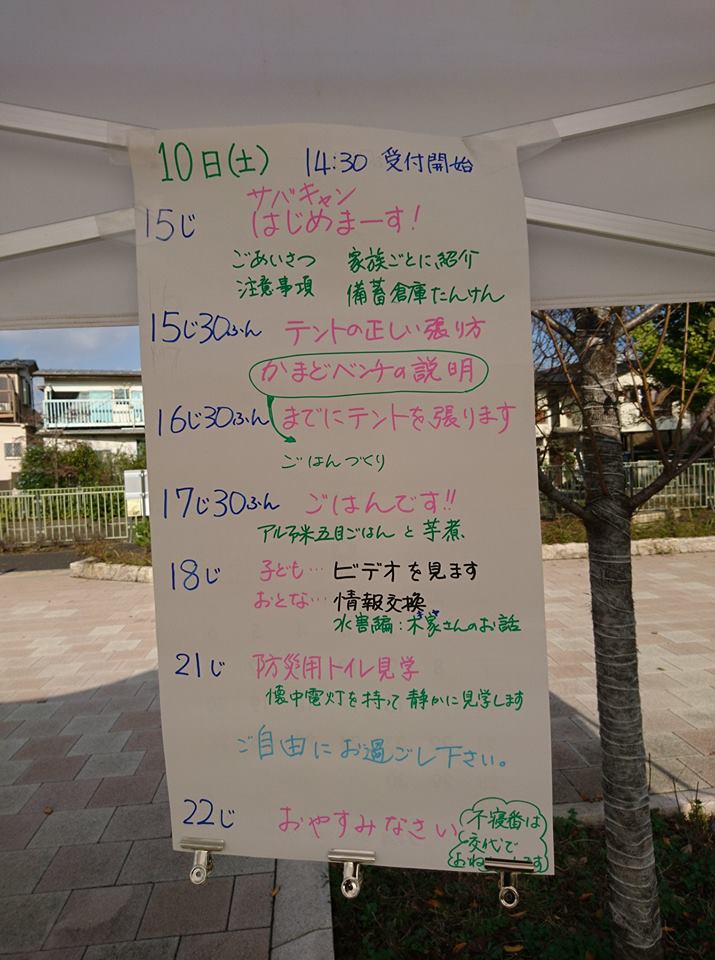 10日(土) 14:30 受付開始
15じ サバキャン
はじめまーす!
ごあいさつ 家族ごとに紹介
注意事項 備蓄倉庫たんけん
15じ30ふん テントの正しい張り方
かまどベンチの説明
16じ30ふん までにテントを張ります
ごはんづくり
17じ30ふん ごはんです!!
アルファ米五目ごはん と 芋煮
18じ 子ども… ビデオを見ます
おとな… 情報交換
水害編:木家さんのお話
21じ 防災用トイレ見学
懐中電灯を持って静かに見学します
ご自由にお過ごし下さい。
22じ おやすみなさい
不寝番は
交代で
おね